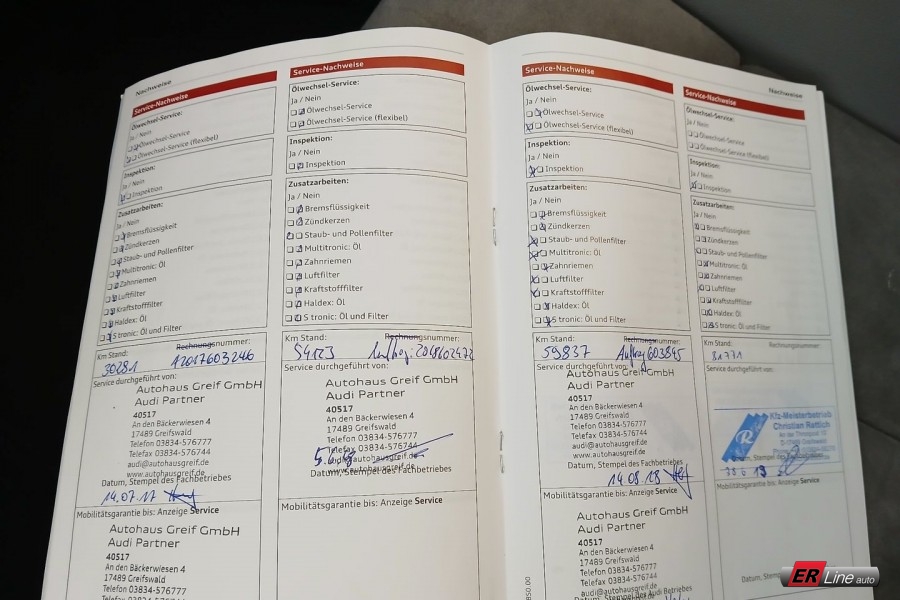 Nachweise
Service-Nachweise
Ölwechsel-Service:
Ja / Nein
Ölwechsel-Service
Ölwechsel-Service (flexibel)
Inspektion:
Ja / Nein
Inspektion
Zusatzarbeiten:
Ja / Nein
Bremsflüssigkeit
Zündkerzen
Staub- und Pollenfilter
Multitronic: Öl
Zahnriemen
Luftfilter
Kraftstofffilter
Haldex: Öl
S tronic: Öl und Filter
Km Stand: Rechnungsnummer:
30281 12017603246
Service durchgeführt von:
Autohaus Greif GmbH
Audi Partner
40517
An den Bäckerwiesen 4
17489 Greifswald
Telefon 03834-576777
Telefax 03834-576744
audi@autohausgreif.de
www.autohausgreif.de
Datum, Stempel des Fachbetriebes
14.07.17
Mobilitätsgarantie bis: Anzeige Service
Autohaus Greif GmbH
Audi Partner
40517
An den Bäckerwiesen 4
17489 Greifswald
Telefon 03834-576777
Service-Nachweise
Ölwechsel-Service:
Ja / Nein
Ölwechsel-Service
Ölwechsel-Service (flexibel)
Inspektion:
Ja / Nein
Inspektion
Zusatzarbeiten:
Ja / Nein
Bremsflüssigkeit
Zündkerzen
Staub- und Pollenfilter
Multitronic: Öl
Zahnriemen
Luftfilter
Kraftstofffilter
Haldex: Öl
S tronic: Öl und Filter
Km Stand: Rechnungsnummer:
54123
Service durchgeführt von:
Autohaus Greif GmbH
Audi Partner
40517
An den Bäckerwiesen 4
17489 Greifswald
Telefon 03834-576777
Telefax 03834-576744
audi@autohausgreif.de
www.autohausgreif.de
Datum, Stempel des Fachbetriebes
Mobilitätsgarantie bis: Anzeige Service
Service-Nachweise
Ölwechsel-Service:
Ja / Nein
Ölwechsel-Service
Ölwechsel-Service (flexibel)
Inspektion:
Ja / Nein
Inspektion
Zusatzarbeiten:
Ja / Nein
Bremsflüssigkeit
Zündkerzen
Staub- und Pollenfilter
Multitronic: Öl
Zahnriemen
Luftfilter
Kraftstofffilter
Haldex: Öl
S tronic: Öl und Filter
Km Stand: Rechnungsnummer:
59837 Auftrag 603845
Service durchgeführt von:
Autohaus Greif GmbH
Audi Partner
40517
An den Bäckerwiesen 4
17489 Greifswald
Telefon 03834-576777
Telefax 03834-576744
audi@autohausgreif.de
www.autohausgreif.de
Datum, Stempel des Fachbetriebes
14.08.18
Mobilitätsgarantie bis: Anzeige Service
Autohaus Greif GmbH
Audi Partner
40517
An den Bäckerwiesen 4
17489 Greifswald
Telefon 03834-576777
Telefax 03834-576744
audi@autohausgreif.de
Nachweise
Service-Nachweise
Ölwechsel-Service:
Ja / Nein
Ölwechsel-Service
Ölwechsel-Service (flexibel)
Inspektion:
Ja / Nein
Inspektion
Zusatzarbeiten:
Ja / Nein
Bremsflüssigkeit
Zündkerzen
Staub- und Pollenfilter
Multitronic: Öl
Zahnriemen
Luftfilter
Kraftstofffilter
Haldex: Öl
S tronic: Öl und Filter
Km Stand: Rechnungsnummer:
81771
Service durchgeführt von:
Kfz-Meisterbetrieb
Christian Rettich
Datum, Stempel des Fachbetriebes
Mobilitätsgarantie bis: Anzeige Service
ER Line auto